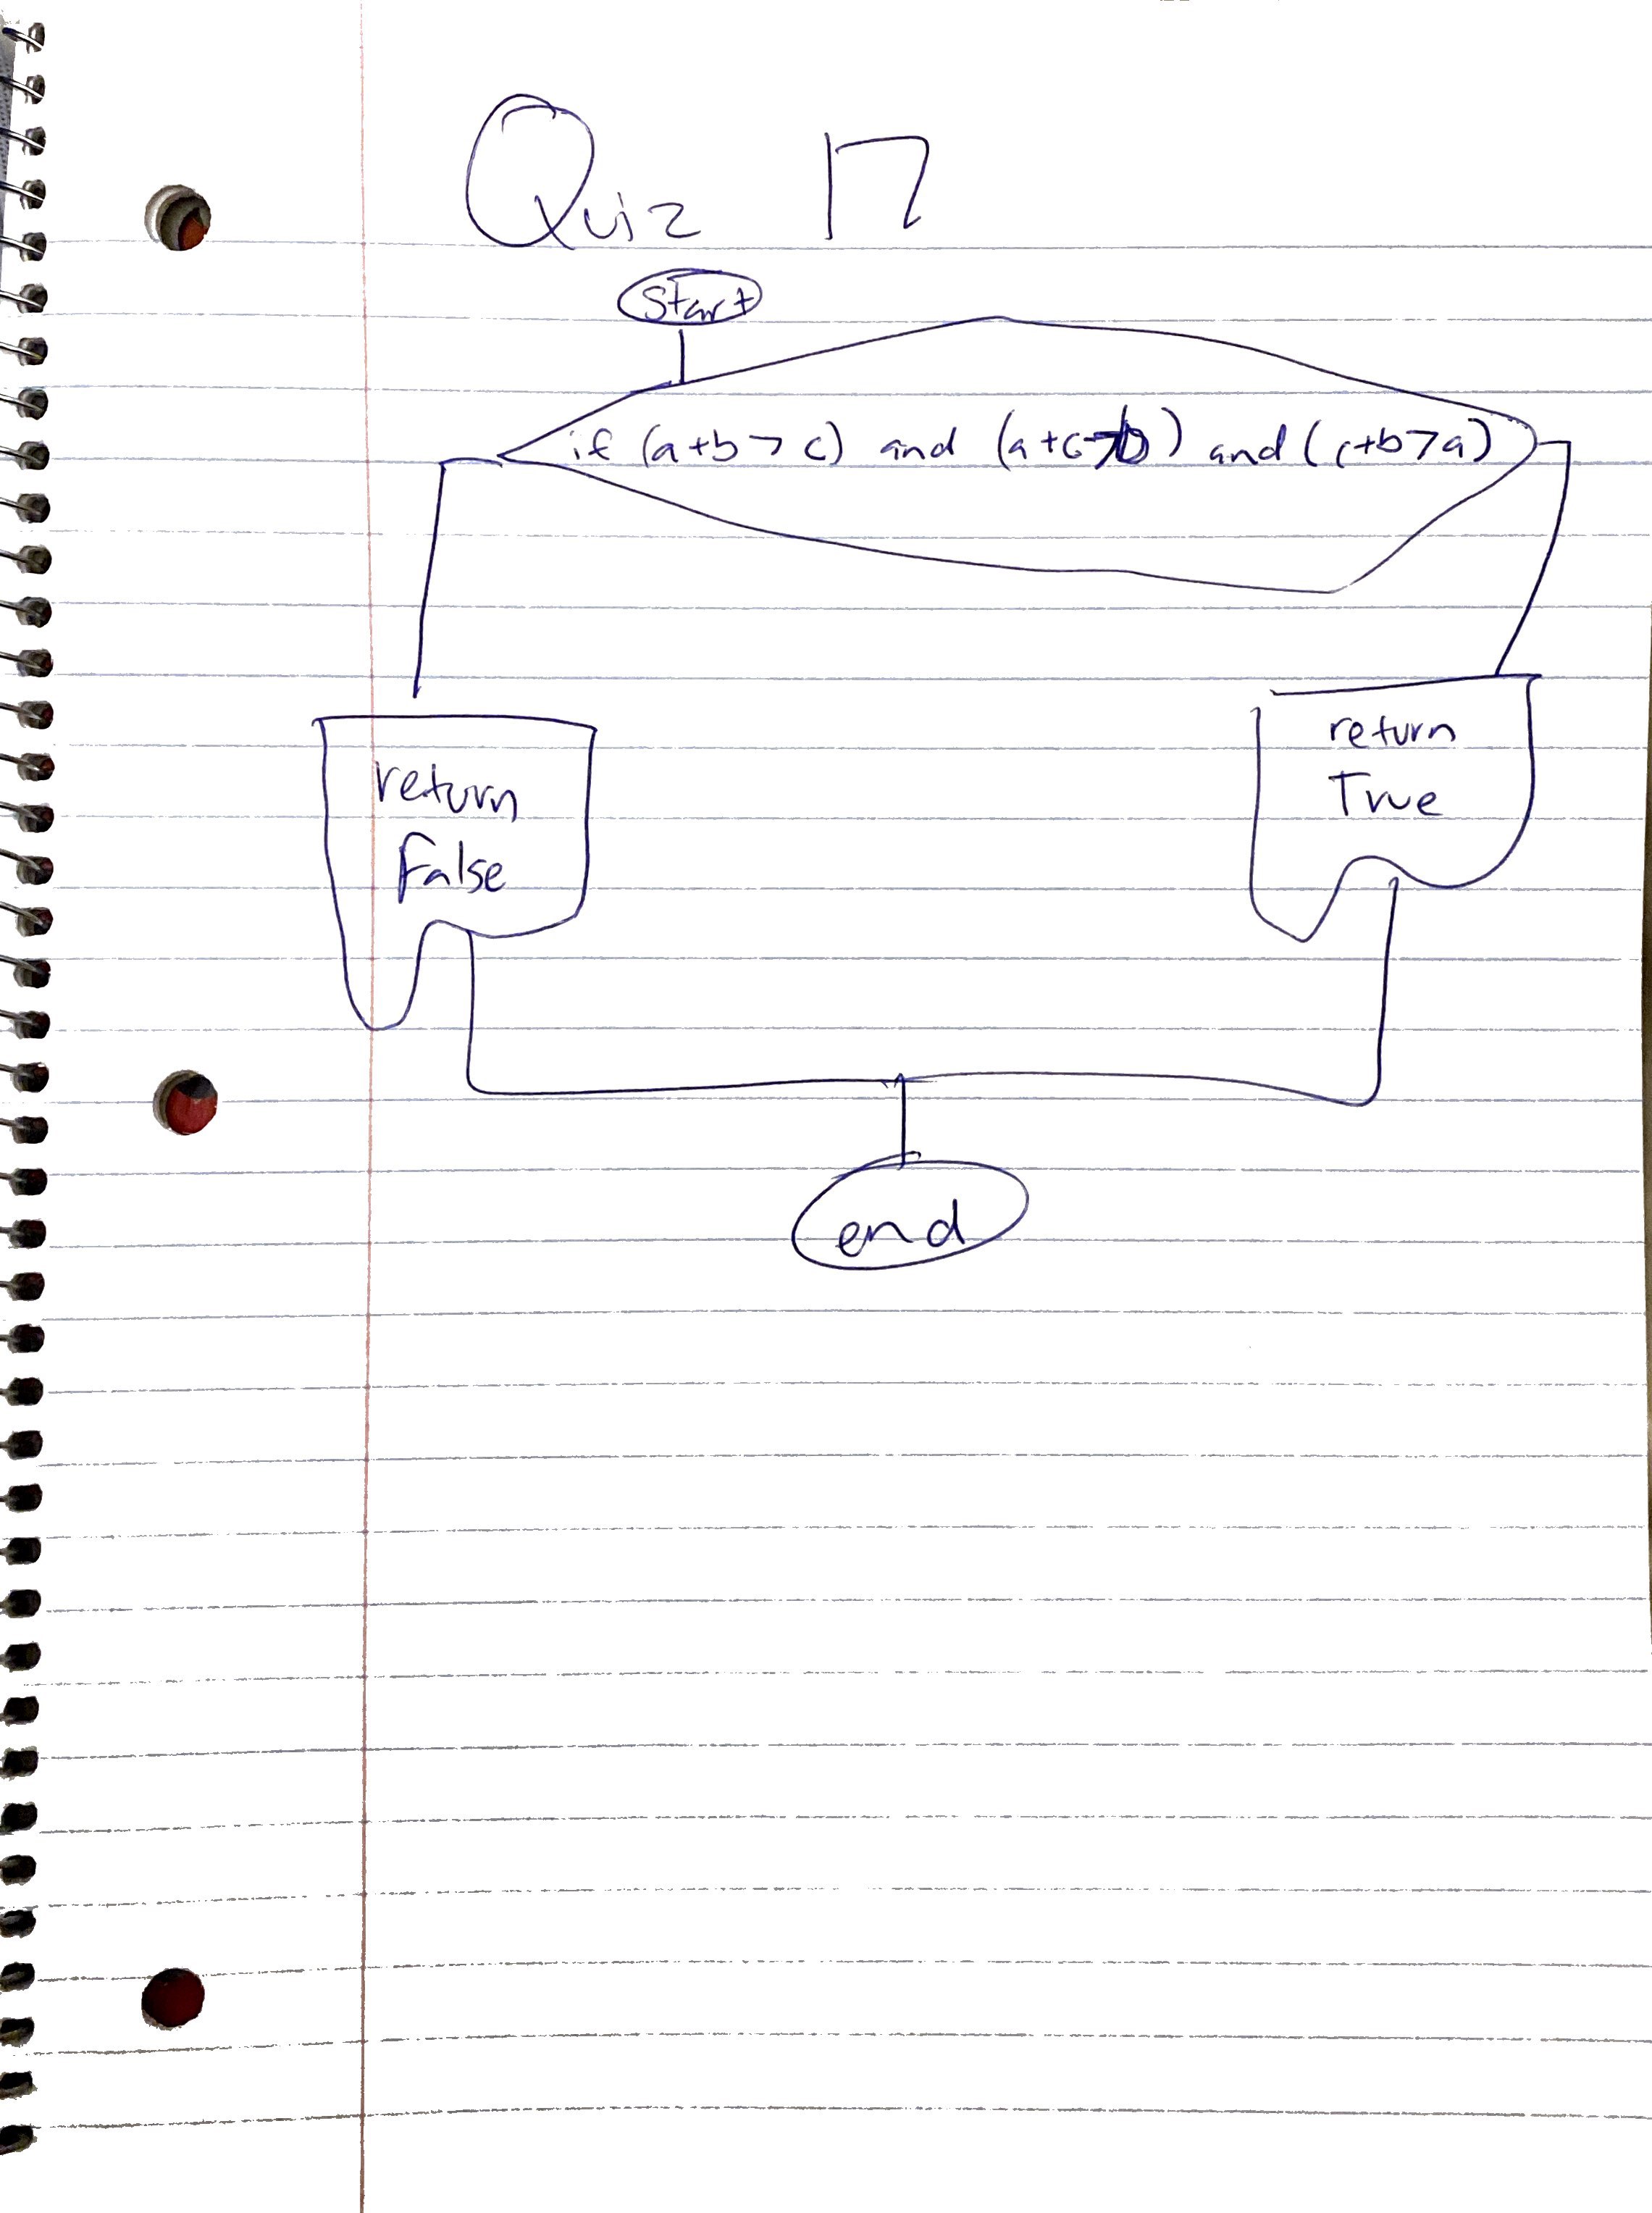 Quiz 17
Start
if (a+b > c) and (a+c>b) and (c+b>a)
return
True
return
False
end